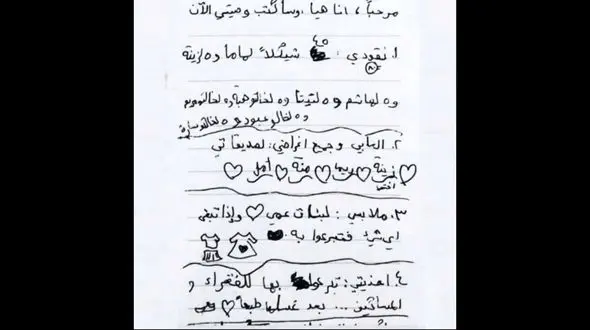 مرحباً، أنا هيا، وسأكتب وصيتي الآن
١. نقودي: ٤٥ شيكلاً لماما و٥ لزينة
٨٠
و٥ لهاشم و٥ لتيتا و٥ لخالتو هبة و٥ لخالتو مريم
و٥ لخالو عبود و٥ لخالتو سارة
٢. ألعابي وجميع أغراضي: لصديقاتي
زينة ♡ ريما ♡ منة ♡ أمل ♡
٣. ملابسي: لبنات عمي ♡ وإذا تبقى
أي شيء فتبرعوا به
٤. أحذيتي: تبرعوا بها للفقراء و
المساكين ... بعد غسلها طبعاً ♡